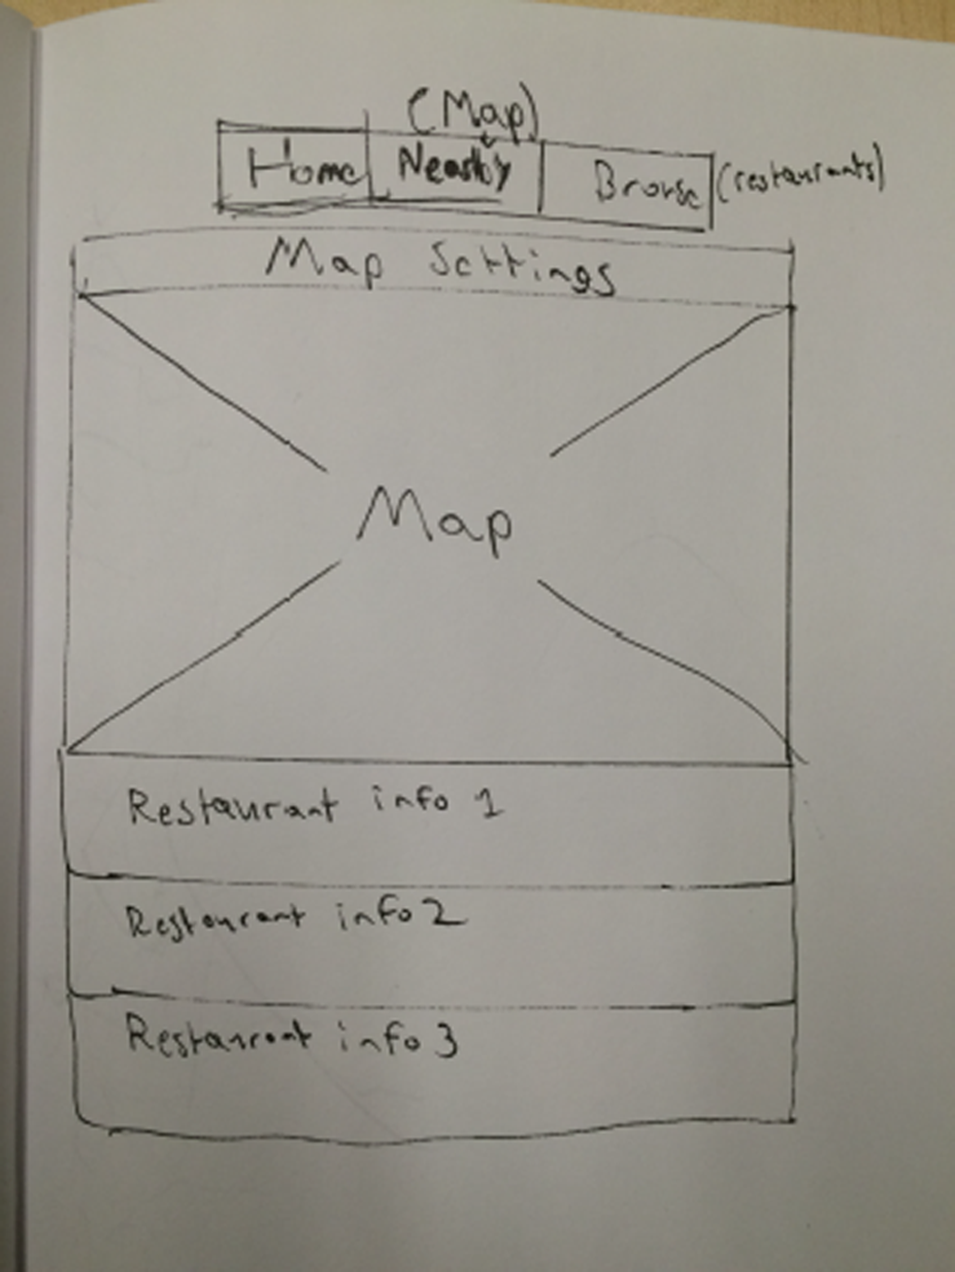 (Map)
Home Nearby Browse (restaurants)
Map Settings
Map
Restaurant info 1
Restaurant info 2
Restaurant info 3